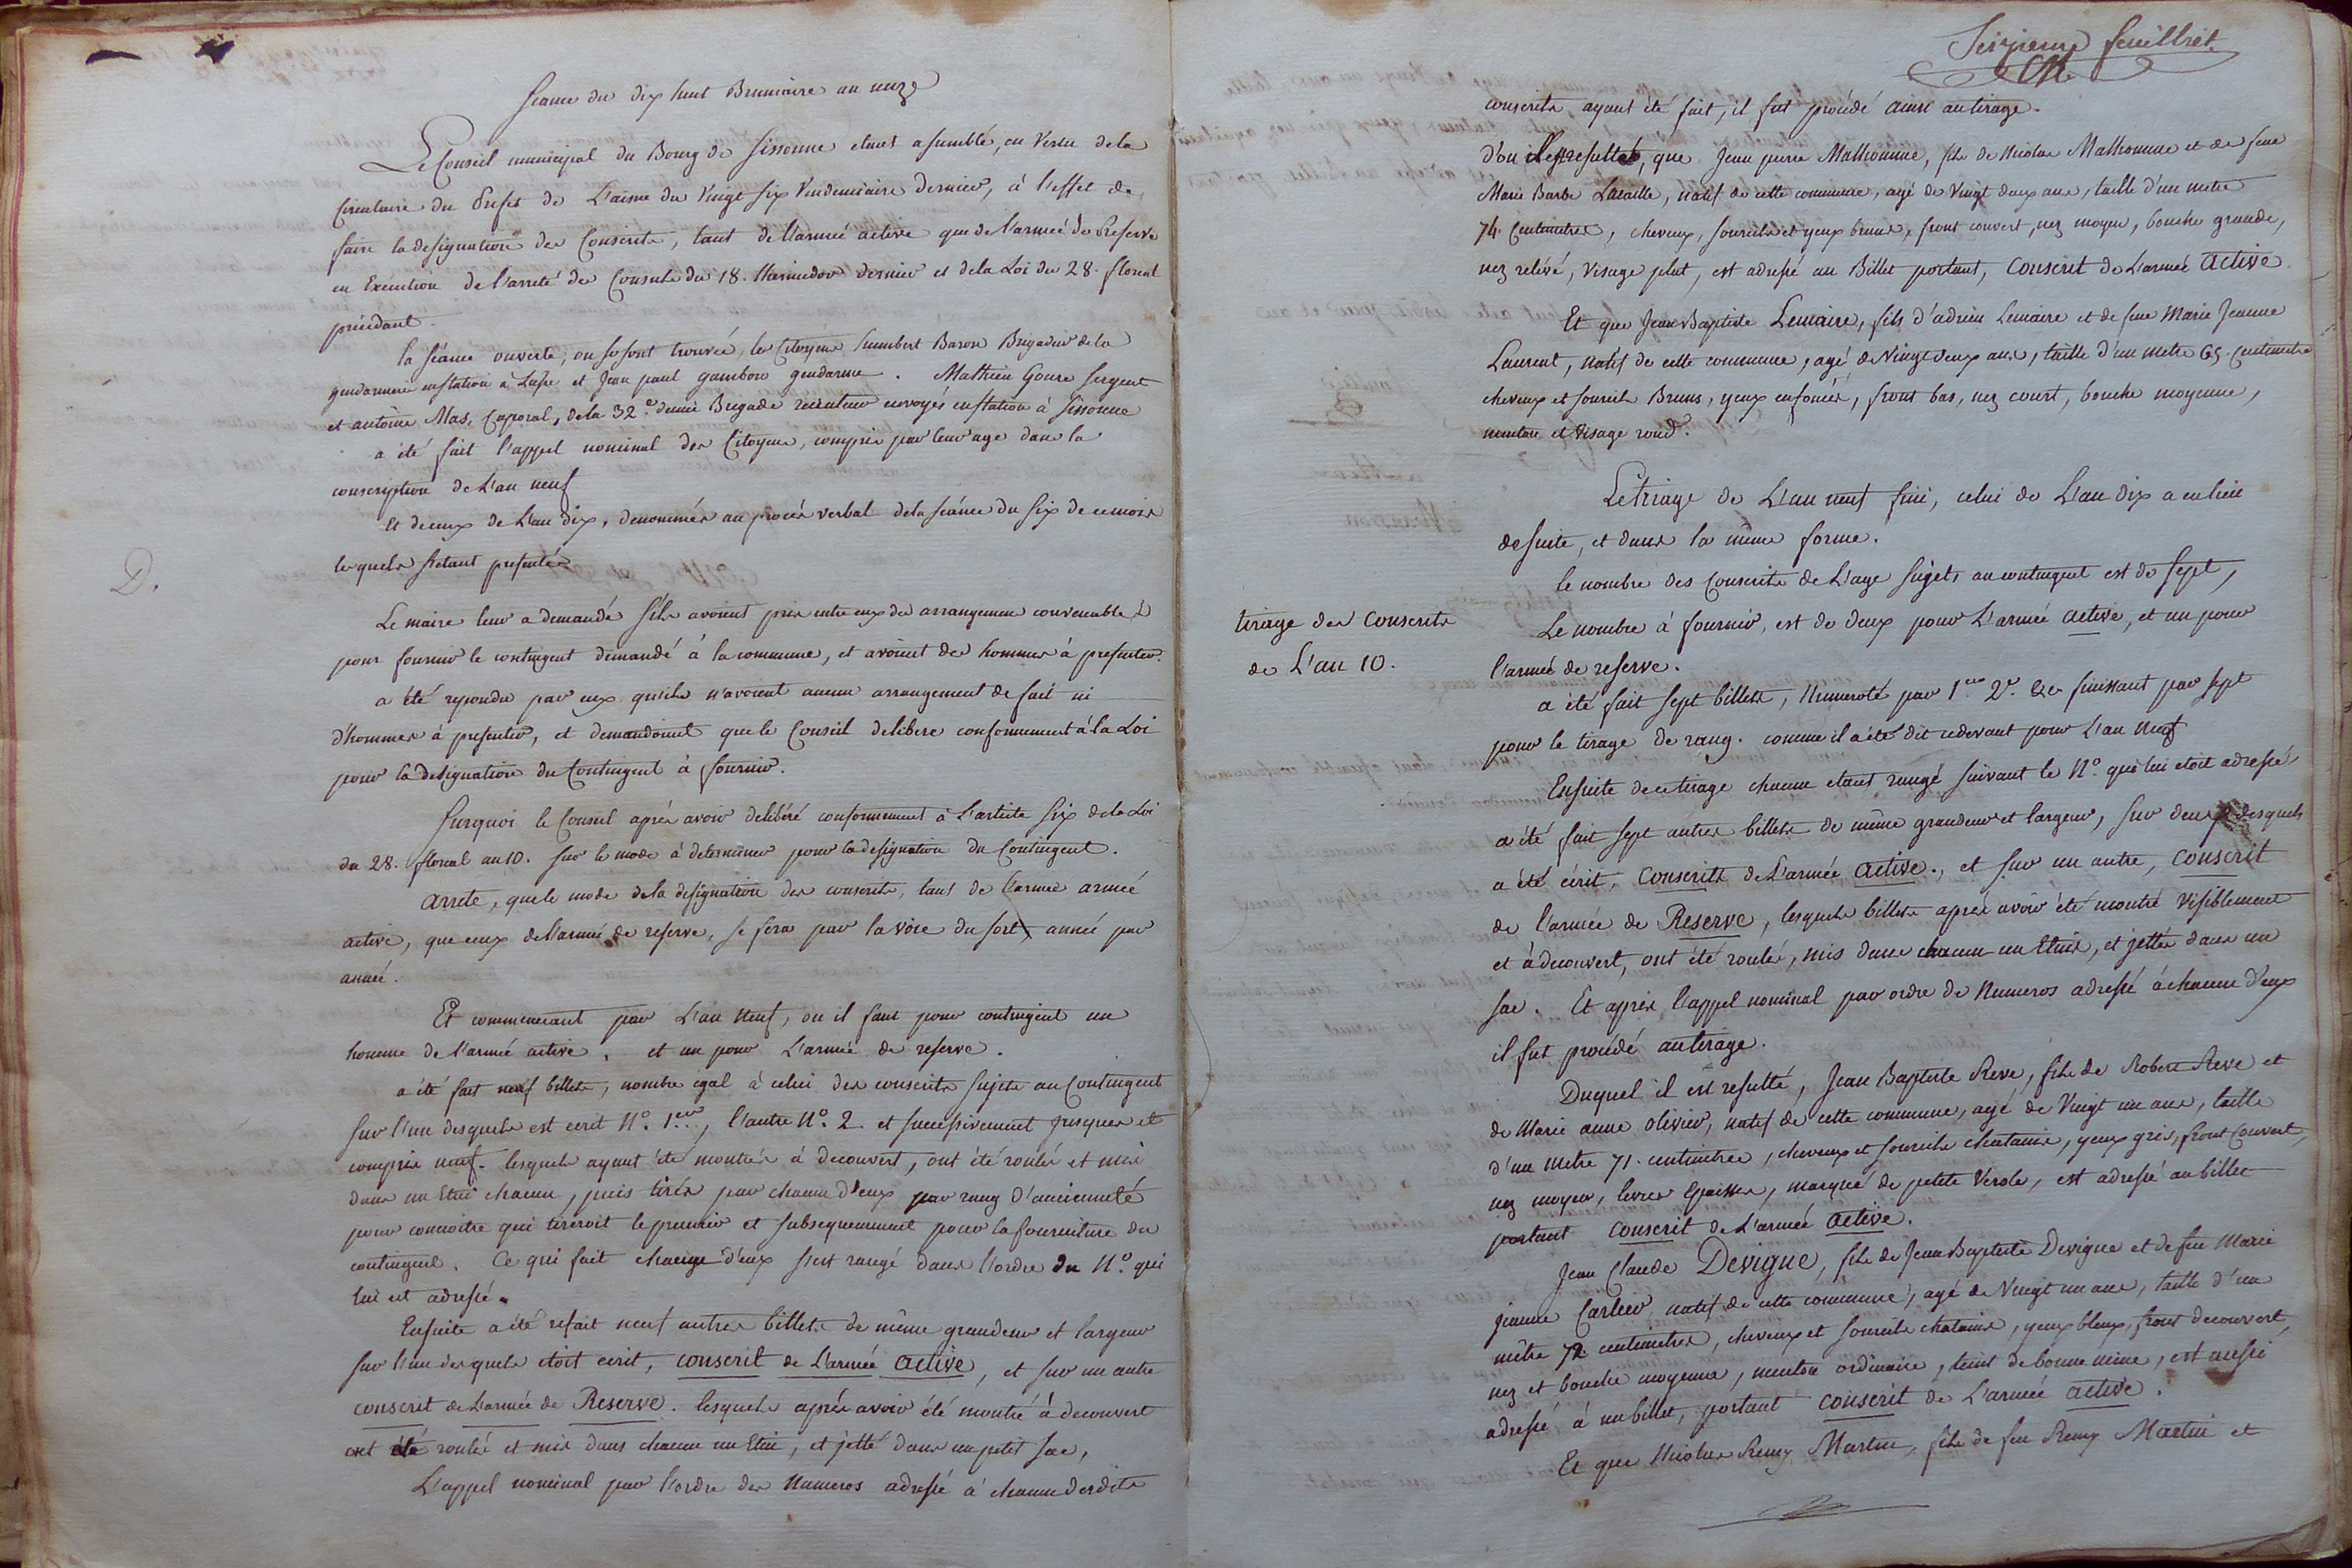 Seance du dix huit Brumaire an onze
Le Conseil municipal du Bourg de Sissonne etant assemblé, en Vertu de la
Circulaire du Prefet de L'aisne du Vingt six Vendemiaire dernier, à l'effet de
faire la designation des Conscrits, tant de l'armée active que de l'armée de Reserve
en Exécution de l'arreté des Consuls du 18. thermidor dernier et de la Loi du 28. floreal
précédant.
la séance ouverte, on se sont trouvés, les Citoyens humbert Baron Brigadier de la
gendarmerie en station à et Jean paul gambon gendarme. Mathieu Goure Sergent
et antoine Mas, Caporal, de la 32e. demie Brigade recruteur envoyés en station à Sissonne
a été fait l'appel nominal des Citoyens, compris par leur age dans la
conscription de L'an neuf
Et de ceux de L'an dix, denommés au procès verbal de la séance du six de ce mois
lesquels s'etant presentés
D.
Le maire leur a demandé s'ils avoient pris entre eux des arrangemens convenables
pour fournir le contingent demandé à la commune, et avoient des hommes à presenter.
a été repondu par eux qu'ils n'avoient aucun arrangement de fait ni
d'hommes à presenter, et demandoient que le Conseil delibere conformement à la Loi
pour la designation du Contingent à fournir.
Surquoi le Conseil après avoir delibéré conformement à L'article six de la Loi
du 28. floreal an 10. sur le mode à determiner pour la designation du Contingent.
arrete, que le mode de la designation des conscrits, tant de l'armée armée
active, que ceux de l'armée de reserve, se fera par la voie du sort, année par
année.
Et commencant par L'an neuf, ou il faut pour contingent un
homme de l'armée active, et un pour L'armée de reserve.
a été fait neuf billets, nombre égal à celui des conscrits sujets au Contingent
sur l'un desquels est ecrit N°. 1er, l'autre N°. 2. et successivement jusques et
compris neuf. lesquels ayant été montrés à decouvert, ont été roulés et mis
dans un Etui chacun, puis tirés par chacun d'eux par rang d'ancienneté
pour connoitre qui tireroit le premier et subsequemment pour la fourniture du
contingent. Ce qui fait chacun d'eux s'est rangé dans l'ordre du N°. qui
lui est adressé.
Ensuite a été refait neuf autres billets de même grandeur et largeur
sur l'un desquels etoit ecrit, conscrit de L'armée active, et sur un autre
conscrit de L'armée de Reserve. lesquels après avoir été montré à decouvert
ont été roulés et mis dans chacun un Etui, et jetté dans un petit sac,
L'appel nominal par l'ordre des Numeros adressé à chacun desdits
Seizieme feuillet
conscrits, ayant été fait, il fut procédé ainsi au tirage.
d'ou il est resulté, que Jean pierre Malhomme, fils de Nicolas Malhomme et de feue
Marie Barbe Lacaille, natif de cette commune, agé de Vingt deux ans, taille d'un metre
74. Centimetres, cheveux, sourcils et yeux bruns, front couvert, nez moyen, bouche grande,
nez relevé, visage plat, est adressé au Billet portant, Conscrit de L'armée active.
Et que Jean Baptiste Lemaire, fils d'adrien Lemaire et de feue Marie Jeanne
Laurent, natif de cette commune, agé de Vingt deux ans, taille d'un metre 65. Centimetres
cheveux et sourcils Bruns, yeux enfoncés, front bas, nez court, bouche moyenne,
menton et visage rond.
Le tirage de L'an neuf fini, celui de L'an dix a eu lieu
de suite, et dans la même forme.
le nombre des Conscrits de L'age sujets au contingent est de sept,
tirage des Conscrits
de L'an 10.
Le nombre à fournir, est de deux pour L'armée active, et un pour
l'armée de reserve.
a été fait sept billets, Numeroté par 1er 2e. &c finissant par sept
pour le tirage de rang. comme il a été dit cidevant pour L'an neuf
Ensuite de ce tirage chacun etant rangé suivant le N°. qui lui etoit adressé
a été fait sept autres billets de même grandeur et largeur, sur deux desquels
a été écrit, Conscrits de L'armée active., et sur un autre, conscrit
de l'armée de Reserve, lesquels billets après avoir été montré visiblement
et à decouvert, ont été roulés, mis dans chacun un Etuis, et jettés dans un
sac. Et après l'appel nominal par ordre de Numeros adressé à chacun d'eux
il fut procédé au tirage.
Duquel il est resulté, Jean Baptiste Reve, fils de Robert Reve et
de Marie anne olivier, natif de cette commune, agé de Vingt un ans, taille
d'un Metre 71. centimetres, cheveux et sourcils chatains, yeux gris, front Couvert,
nez moyen, levres epaisses, marqué de petite Verole, est adressé au billet
portant Conscrit de L'armée active.
Jean Claude Devigne, fils de Jean Baptiste Devigne et de feue Marie
jeanne Carlier natif de cette commune, agé de Vingt un ans, taille d'un
mètre 72. centimetres, cheveux et sourcils chatains, yeux bleux, front decouvert,
nez et bouche moyenne, menton ordinaire, teint de bonne mine, est aussi
adressé à un billet, portant conscrit de L'armée active.
Et que Nicolas Remy Martin, fils de feu Remy Martin et